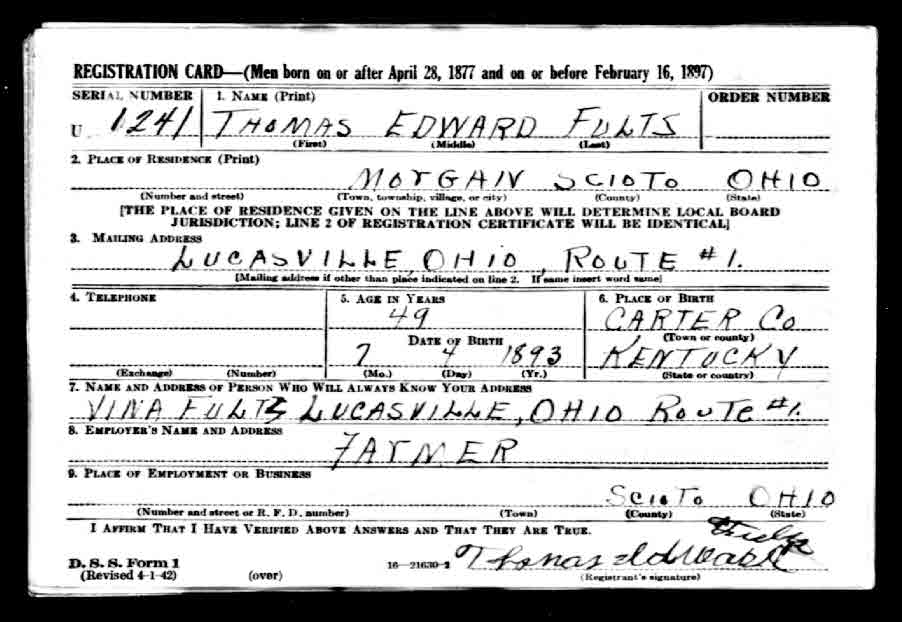 REGISTRATION CARD—(Men born on or after April 28, 1877 and on or before February 16, 1897)
SERIAL NUMBER 1. NAME (Print) ORDER NUMBER
U 1241 THOMAS EDWARD FULTS
(First) (Middle) (Last)
2. PLACE OF RESIDENCE (Print)
MORGAN SCIOTO OHIO
(Number and street) (Town, township, village, or city) (County) (State)
[THE PLACE OF RESIDENCE GIVEN ON THE LINE ABOVE WILL DETERMINE LOCAL BOARD
JURISDICTION; LINE 2 OF REGISTRATION CERTIFICATE WILL BE IDENTICAL]
3. MAILING ADDRESS
LUCASVILLE, OHIO, ROUTE #1.
[Mailing address if other than place indicated on line 2. If same insert word same]
4. TELEPHONE 5. AGE IN YEARS 6. PLACE OF BIRTH
49 CARTER CO
DATE OF BIRTH (Town or county)
7 4 1893 KENTUCKY
(Exchange) (Number) (Mo.) (Day) (Yr.) (State or country)
7. NAME AND ADDRESS OF PERSON WHO WILL ALWAYS KNOW YOUR ADDRESS
VINA FULTS LUCASVILLE, OHIO ROUTE #1.
8. EMPLOYER'S NAME AND ADDRESS
FARMER
9. PLACE OF EMPLOYMENT OR BUSINESS
SCIOTO OHIO
(Number and street or R. F. D. number) (Town) (County) (State)
I AFFIRM THAT I HAVE VERIFIED ABOVE ANSWERS AND THAT THEY ARE TRUE.
D. S. S. Form 1 16—21630-2 Thomas Edward
(Revised 4-1-42) (over) (Registrant's signature)